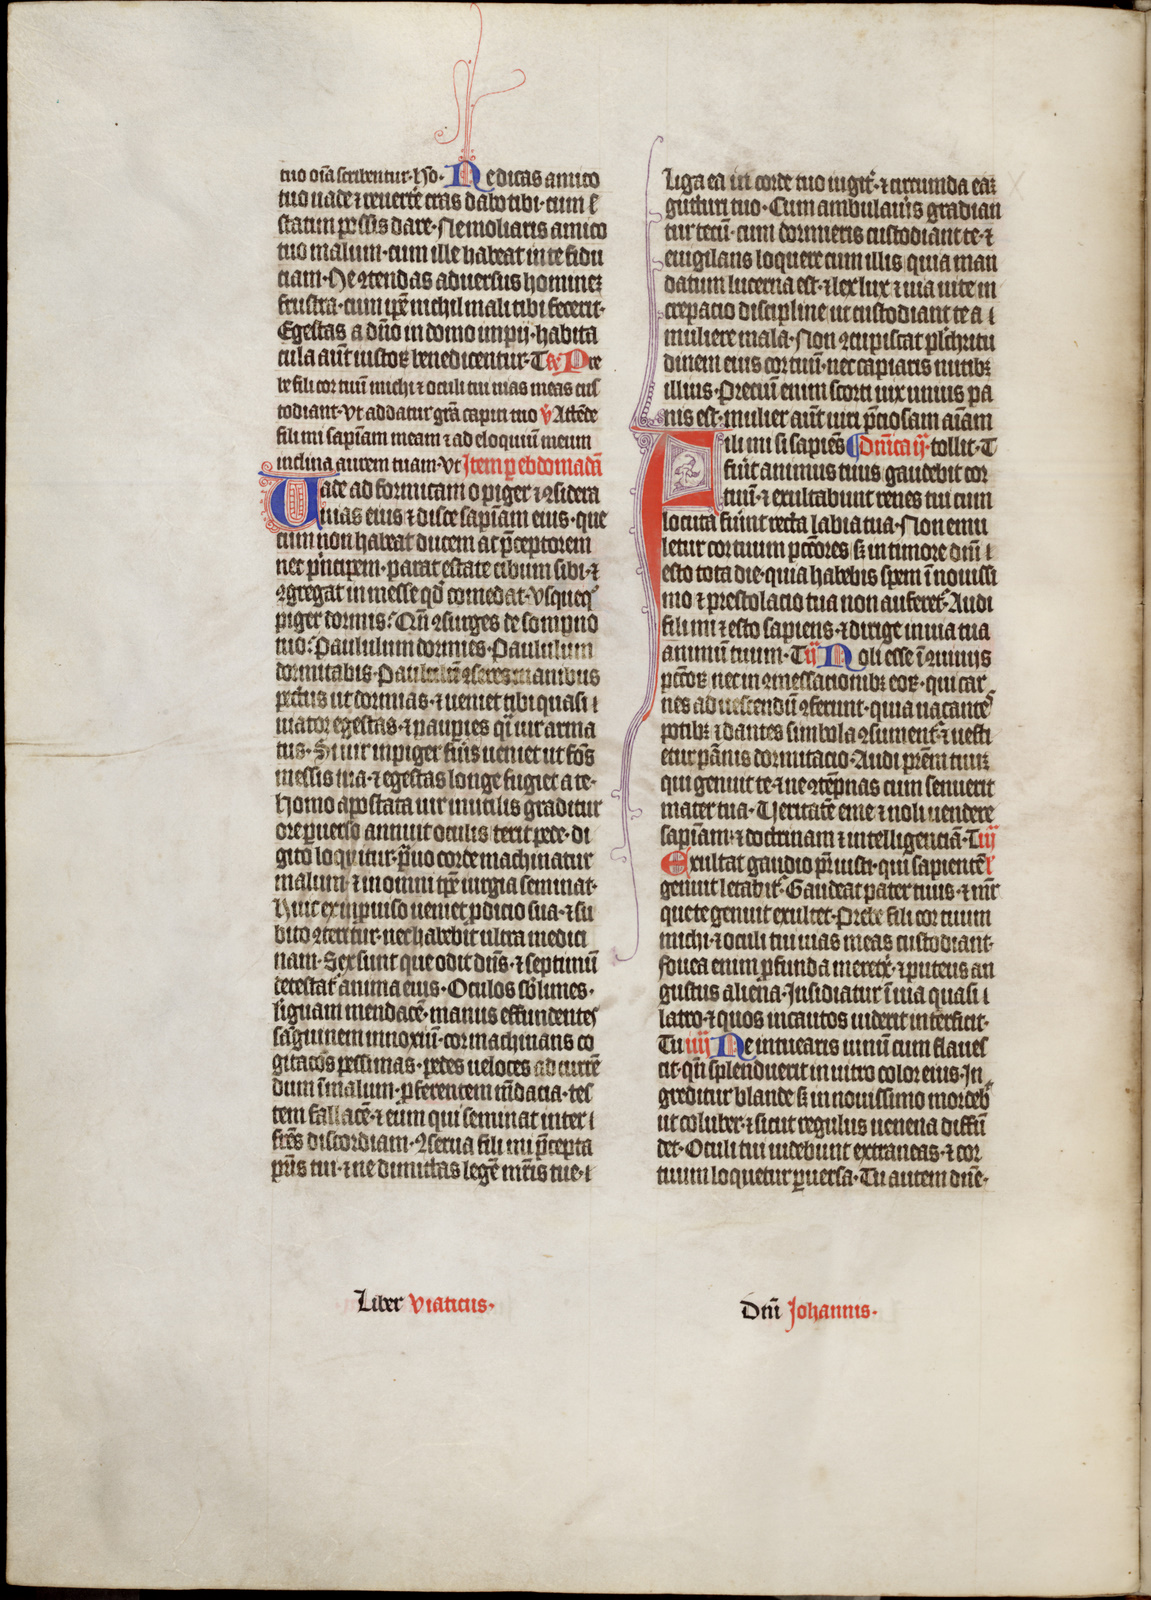 tuo oīa scribentur· Ho· Ne dicas amico
tuo uade ⁊ reuertē cras dabo tibi· cum
statim possis dare· Ne moliaris amico
tuo malum· cum ille habeat in te fidu
ciam· Ne ꝯtendas aduersus homineꝫ
frustra· cum ip̄e nichil mali tibi fecerit·
Egestas a dn̄o in domo impij· habita
cula aūt iustoꝝ benedicentur· Pre
be fili cor tuū michi ⁊ oculi tui uias meas cus
todiant· Vt addatur gr̄a capiti tuo ℣ Attēde
fili mi sapīam meam ⁊ ad eloquiū meum
inclina aurem tuam· Vt Item ꝑ ebdomadā
Uade ad formicam o piger ⁊ ꝯsidera
uias eius ⁊ disce sapīam eius· que
cum non habeat ducem at p̄ceptorem
nec prīcipem· parat estate cibum sibi· ⁊
ꝯgregat in messe qd̄ comedat· Vsqueq̄
piger dormis· Qn̄ ꝯsurges de sompno
tuo· Paululum dormies· Paululum
dormitabis· Paululū ꝯseres manibus
pectus ut dormias· ⁊ ueniet tibi quasi
uiator egestas· ⁊ paupies q̄i uir arma
tus· Si uir inpiger fūis ueniet ut fōs
messis tua· ⁊ egestas longe fugiet a te·
Homo apostata uir inutilis graditur
ore ꝑuerso annuit oculis terit pede· di
gito loquitur· p̄uo corde machinatur
malum· ⁊ in omni tp̄e iurgia seminat·
Huic ex inprouiso ueniet ꝑdicio sua· ⁊ su
bito ꝯteritur· nec habebit ultra medici
nam· Sex sunt que odit dn̄s· ⁊ septimū
detestat᷑ anima eius· Oculos sb̄limes·
liguam mendacē· manus effundentes
sāguinem innoxiū· cor machinans co
gitacōs pessimas· pedes ueloces ad currē
dum ī malum· ꝓferentem mn̄dacia· tes
tem fallacē· ⁊ eum qui seminat inter
frēs discordiam· ꝯserua fili mi p̄cepta
pr̄is tui· ⁊ ne dimittas legē mr̄is tue·
Liga ea in corde tuo iugit᷑· ⁊ circumda ea
gutturi tuo· Cum ambulauis̄ gradian
tur tecū· cum dormieris custodiant te· ⁊
euigilans loquere cum illis quia man
datum lucerna est· ⁊ lex lux ⁊ uia uite in
crepacio discipline ut custodiant te a
muliere mala· Non ꝯcupiscat pl̄chritu
dinem eius cor tuū· nec capiaris nutibꝫ
illius· Preciū enim scorti uix unius pa
nis est· mulier aūt uiri p̄ciosam aīam
Fili mi si sapiēs Dn̄ica ij· tollit· T
fūit animus tuus gaudebit cor
tuū· ⁊ exultabunt renes tui cum
locuta fūint recta labia tua· Non emu
letur cor tuum pcc̄ores sꝫ in timore dn̄i
esto tota die· quia habebis spem ī nouissi
mo ⁊ prestolacio tua non auferet᷑· Audi
fili mi ⁊ esto sapiens· ⁊ dirige in uia tua
animū tuum· T ij Noli esse ī ꝯuiuijs
pcc̄oꝝ nec in ꝯmessacionibꝫ eoꝝ· qui car
nes ad uescendū ꝯferunt· quia uacantes
potibꝫ ⁊ dantes simbola ꝯsument᷑· ⁊ uesti
etur pānis dormitacio· Audi prēm tuū
qui genuit te· ⁊ ne ꝯtēpnas cum senuerit
mater tua· Veritatē eme ⁊ noli uendere
sapīam· ⁊ doctrinam ⁊ intelligenciā· T iij
Exultat gaudio pr̄ iusti· qui sapientē
genuit letabit᷑· Gaudeat pater tuus· ⁊ mr̄
que te genuit exultet· Prebe fili cor tuum
michi· ⁊ oculi tui uias meas custodiant·
fouea enim ꝓfunda meretͥx· ⁊ puteus an
gustus aliena· Insidiatur ī uia quasi
latro· ⁊ quos incautos uiderit interficit·
Tu iiij Ne intuearis uinū cum flaues
cit· qn̄ splenduerit in uitro color eius· In
greditur blande sꝫ in nouissimo mordeb
ut coluber· ⁊ sicut regulus uenena diffū
det· Oculi tui uidebunt extraneas· ⁊ cor
tuum loquetur ꝑuersa· Tu autem dn̄e·
Liber Viaticus·
Dn̄i Johannis·